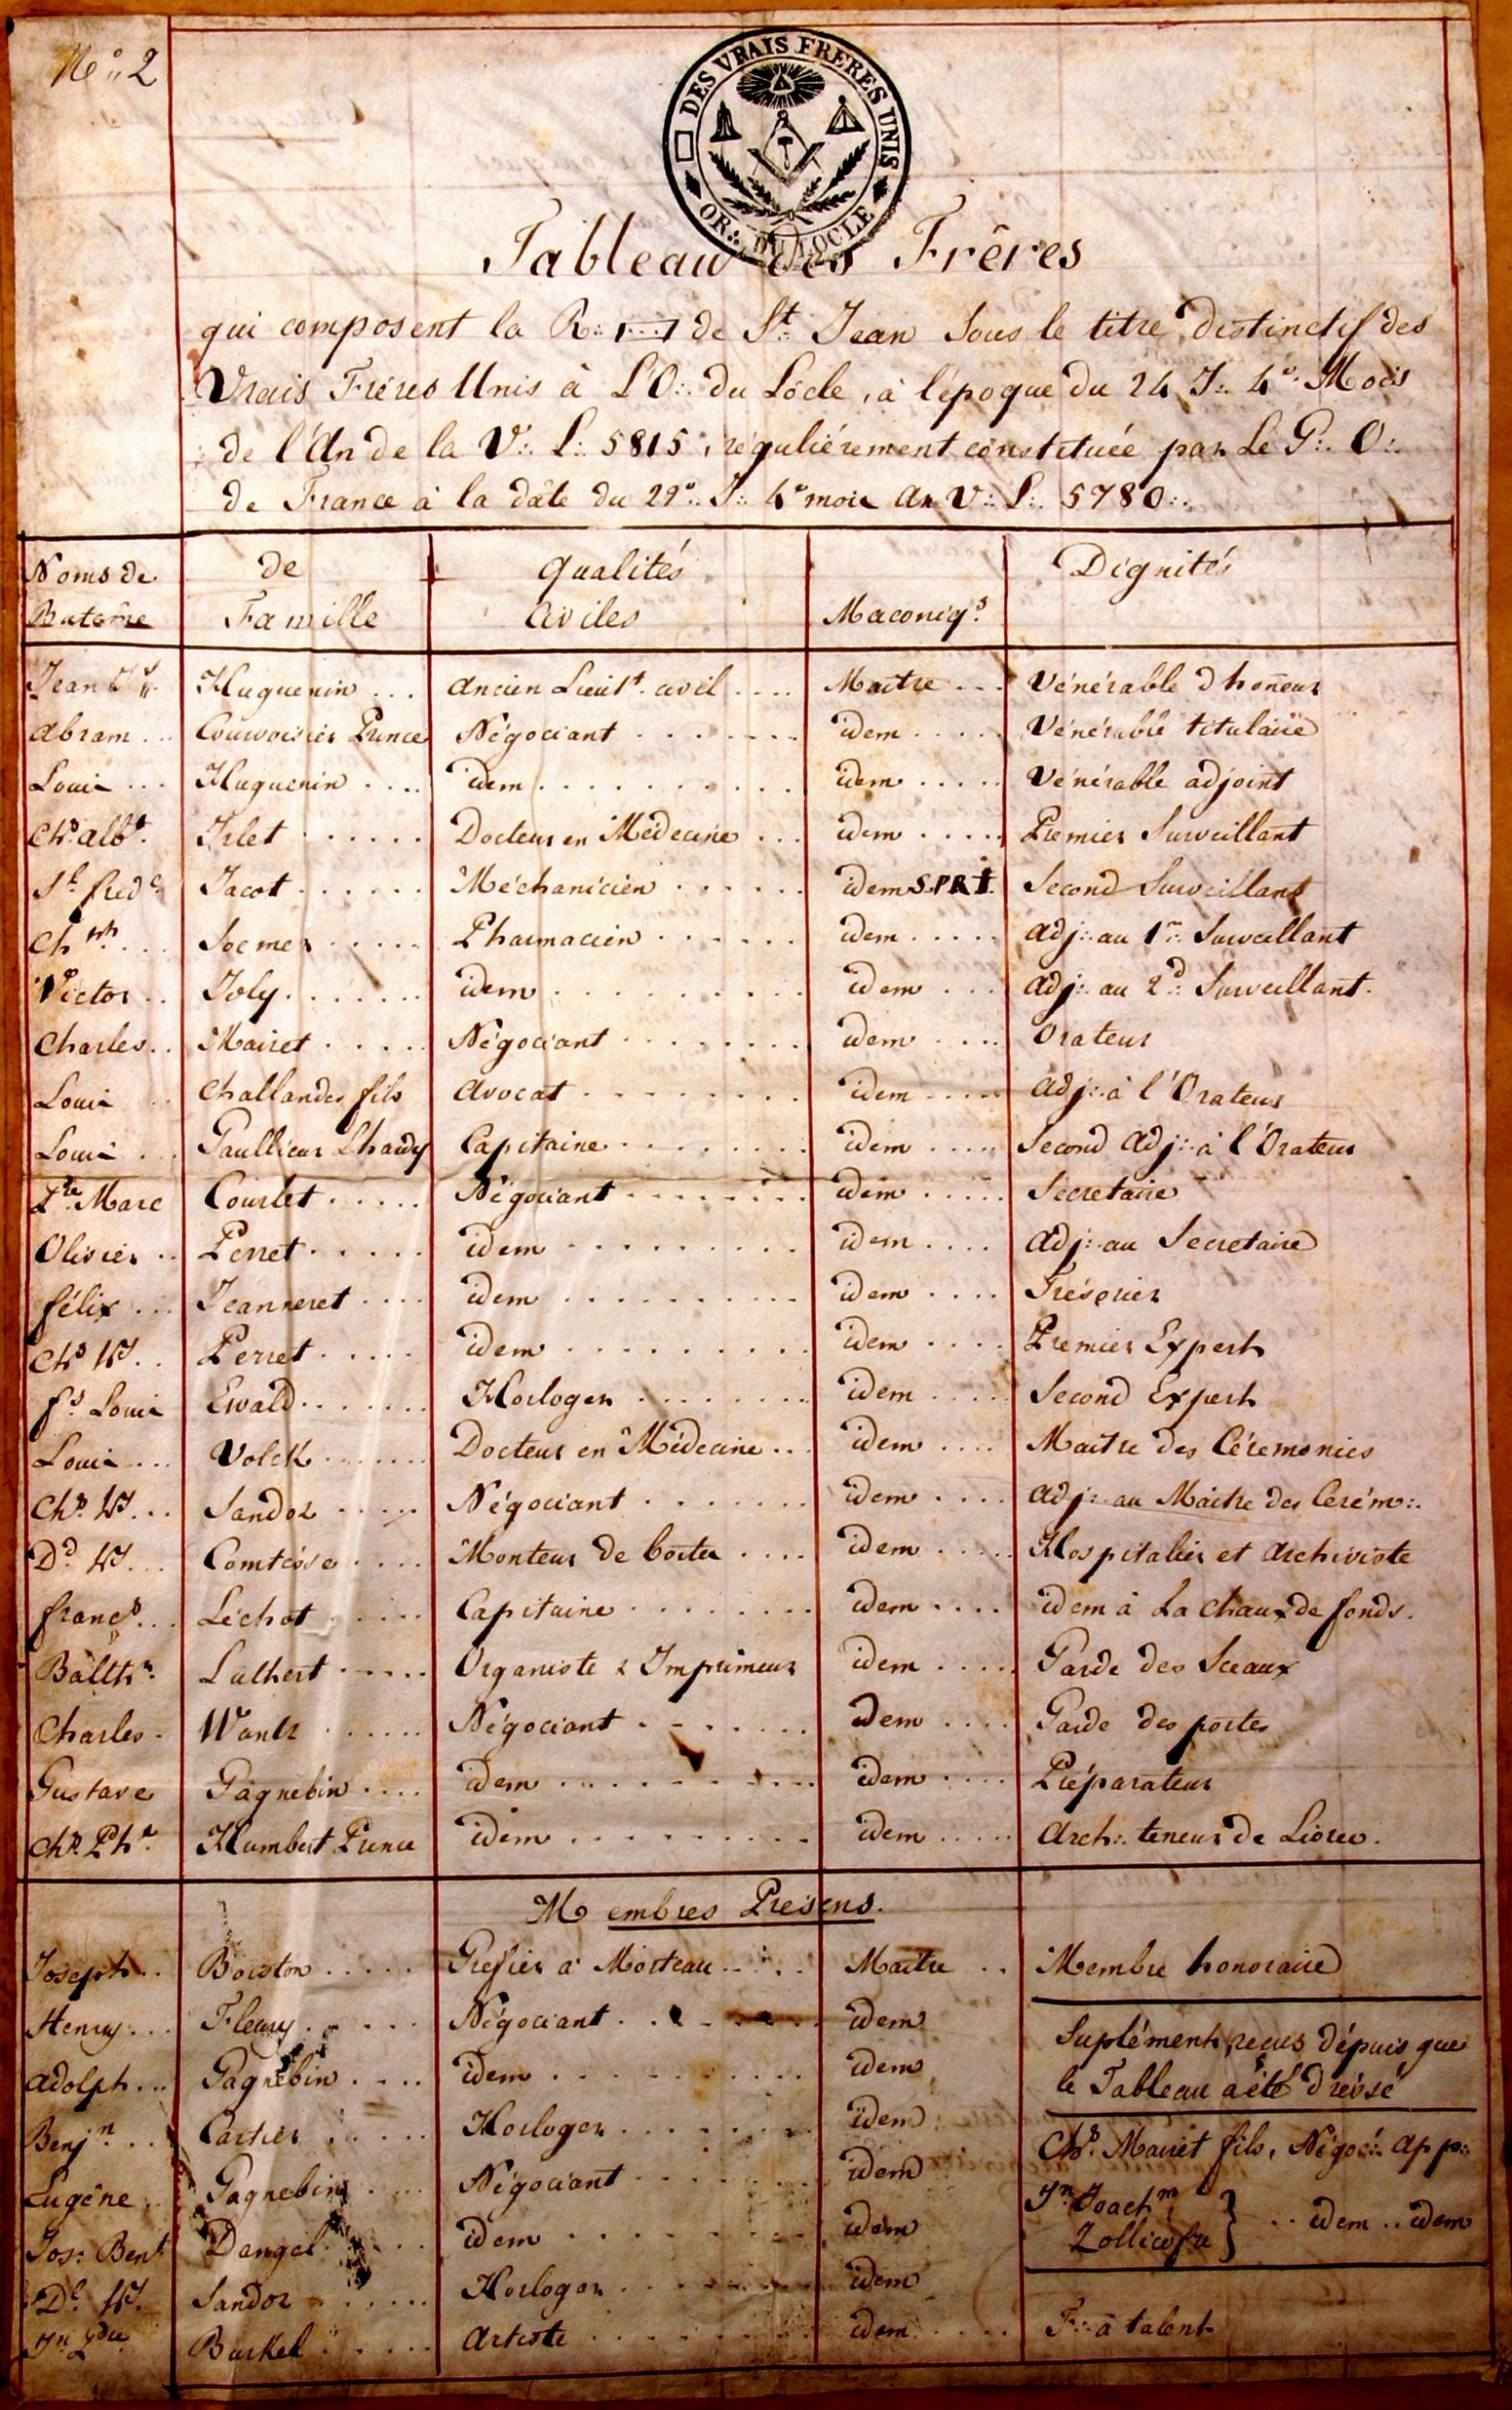 N° 2
DES VRAIS FRERES UNIS
OR∴ DU LOCLE
Tableau des Frêres
qui composent la R∴ de St Jean Sous le titre distinctif des
Vrais Freres Unis à L'O∴ du Locle, à l'époque du 24 J∴ 4e Mois
de l'An de la V∴ L∴ 5815, réguliérement constituée par Le G∴ O∴
de France à la date du 29e J∴ 4e mois An V∴ L∴ 5780∴
Noms de de Qualités Dignités
Batême Famille Civiles Maconiqs
Jean Huguenin ... Ancien Lieutt civil .... Maitre ... Vénérable d'honneur
Abram ... Courvoisier Prince Négociant ....... idem ..... Vénérable titulaire
Louis ... Huguenin .... idem .......... idem ..... Vénérable adjoint
Chs albt Irlet ...... Docteur en Médecine ... idem ..... Premier Surveillant
fredc Jacot ...... Méchanicien ...... idem S.P.R. Second Surveillant
Ch ... ..... Pharmacien ...... idem ..... adj∴ au 1er Surveillant
Victor .. Joly ....... idem .......... idem .... adj∴ au 2d Surveillant
Charles .. Mairet ..... Négociant ........ idem .... Orateur
Louis .. Challandes fils Avocat ........ idem .... adj∴ à l'Orateur
Louis ... Gaullieur Lhardy Capitaine ....... idem .... Second adj∴ à l'Orateur
Marc Courlet ..... Négociant ........ idem ..... Secretaire
Olivier .. Perret ..... idem ......... idem .... adj∴ au Secretaire
félix ... Jeanneret .... idem .......... idem .... Trésorier
Chs Hy .. Perret ..... idem ......... idem .... Premier Expert
fs Louis Ewald ....... Horloger ........ idem .... Second Expert
Louis ... Volck ....... Docteur en Médecine ... idem .... Maitre des Céremonies
Chs Hy ... Sandoz ..... Négociant ....... idem .... adj∴ au Maitre des Cerém∴
Dd Hy ... Comtesse .... Monteur de boites .... idem ..... Hospitalier et Archiviste
francs ... Léchot ..... Capitaine ........ idem .... idem à La Chaux de fonds.
Balthr Luthert ..... Organiste & Imprimeur idem .... Garde des Sceaux
Charles . ...... Négociant ....... idem .... Garde des portes
Gustave Gagnebin .... idem .......... idem .... Préparateur
Chs Phe Humbert Prince idem ......... idem ..... Arch∴ teneur de Livres.
Membres Presens.
Joseph .. Boiston ..... Grefier à Morteau ..... Maitre .. Membre honoraire
Henry ... Fleury ..... Négociant ....... idem
Suplément, recus dépuis que
Adolph ... Gagnebin .... idem .......... idem
le Tableau a été dréssé
Benjn ... Cartier ..... Horloger ....... idem
Chs Mairet fils, Négoc∴ App∴
Eugéne .. Gagnebin .... Négociant ....... idem
Jn Joachm
Zollicofre } .. idem .. idem
Jos: Bent Dangel ..... idem ....... idem
Dl Hy Sandoz ...... Horloger ....... idem
Burkel ..... Artiste ........ idem ..... F∴ à talent